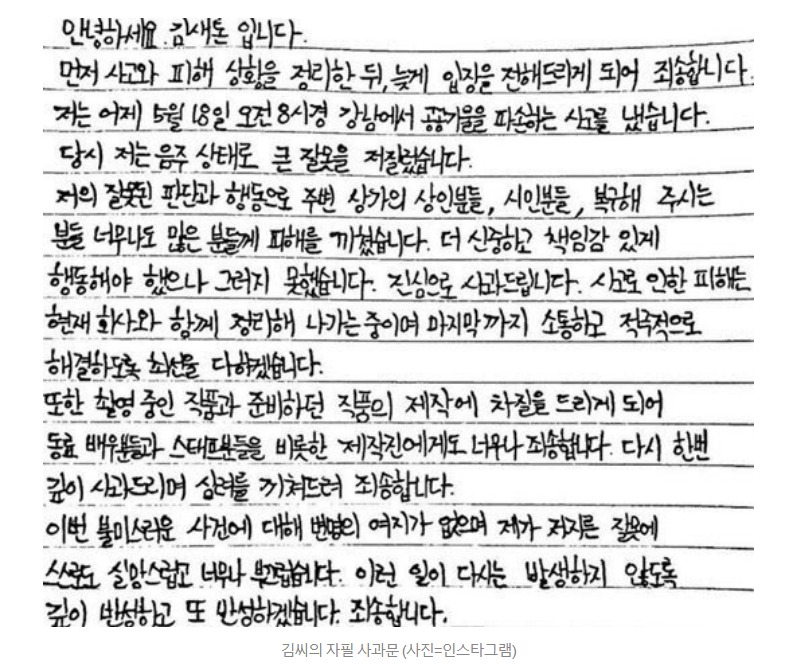 안녕하세요. 김새론 입니다.
먼저 사고와 피해 상황을 정리한 뒤, 늦게 입장을 전해드리게 되어 죄송합니다.
저는 어제 5월 18일 오전 8시경 강남에서 공공기물을 파손하는 사고를 냈습니다.
당시 저는 음주 상태로 큰 잘못을 저질렀습니다.
저의 잘못된 판단과 행동으로 주변 상가의 상인분들, 시민분들, 복구해 주시는
분들 너무나도 많은 분들께 피해를 끼쳤습니다. 더 신중하고 책임감 있게
행동해야 했으나 그러지 못했습니다. 진심으로 사과드립니다. 사고로 인한 피해는
현재 회사와 함께 정리해 나가는 중이며 마지막까지 소통하고 적극적으로
해결하도록 최선을 다하겠습니다.
또한 촬영 중인 작품과 준비하던 작품의 제작에 차질을 드리게 되어
동료 배우분들과 스태프분들을 비롯한 제작진에게도 너무나 죄송합니다. 다시 한번
깊이 사과드리며 심려를 끼쳐드려 죄송합니다.
이번 불미스러운 사건에 대해 변명의 여지가 없으며 제가 저지른 잘못에
스스로도 실망스럽고 너무나 부끄럽습니다. 이런 일이 다시는 발생하지 않도록
깊이 반성하고 또 반성하겠습니다. 죄송합니다.
김씨의 자필 사과문 (사진=인스타그램)